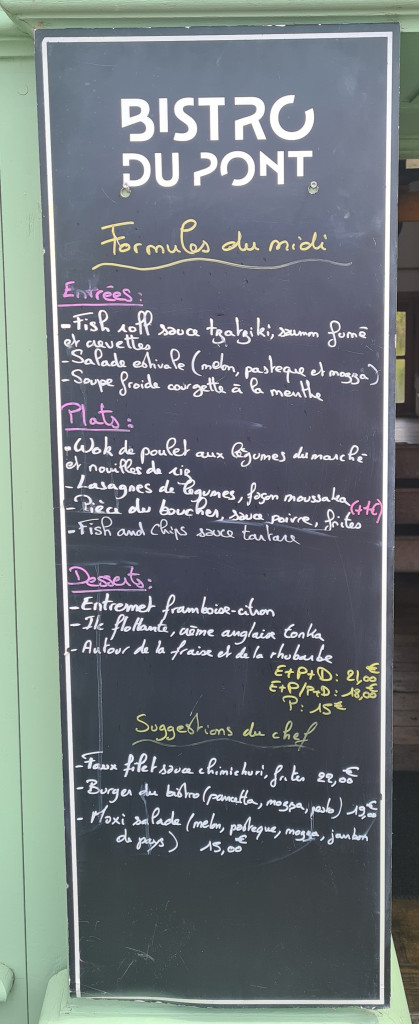 BISTRO
DU PONT
Formules du midi
Entrées :
- Fish roll sauce tzatziki, saumon fumé
et crevettes
- Salade estivale (melon, pasteque et mozza)
- Soupe froide courgette à la menthe
Plats :
- Wok de poulet aux légumes du marché
et nouilles de riz
- Lasagnes de légumes, façon moussaka
- Pièce du boucher, sauce poivre, frites
- Fish and chips sauce tartare
Desserts :
- Entremet framboise-citron
- Ile flottante, crème anglaise tonka
- Autour de la fraise et de la rhubarbe
E+P+D : 21,00€
E+P/P+D : 18,00€
P : 15€
Suggestions du chef
- Faux filet sauce chimichuri, frites 22,00€
- Burger du bistro (pancetta, mozza, pesto) 19,00€
- Maxi salade (melon, pasteque, mozza, jambon
de pays) 15,00€